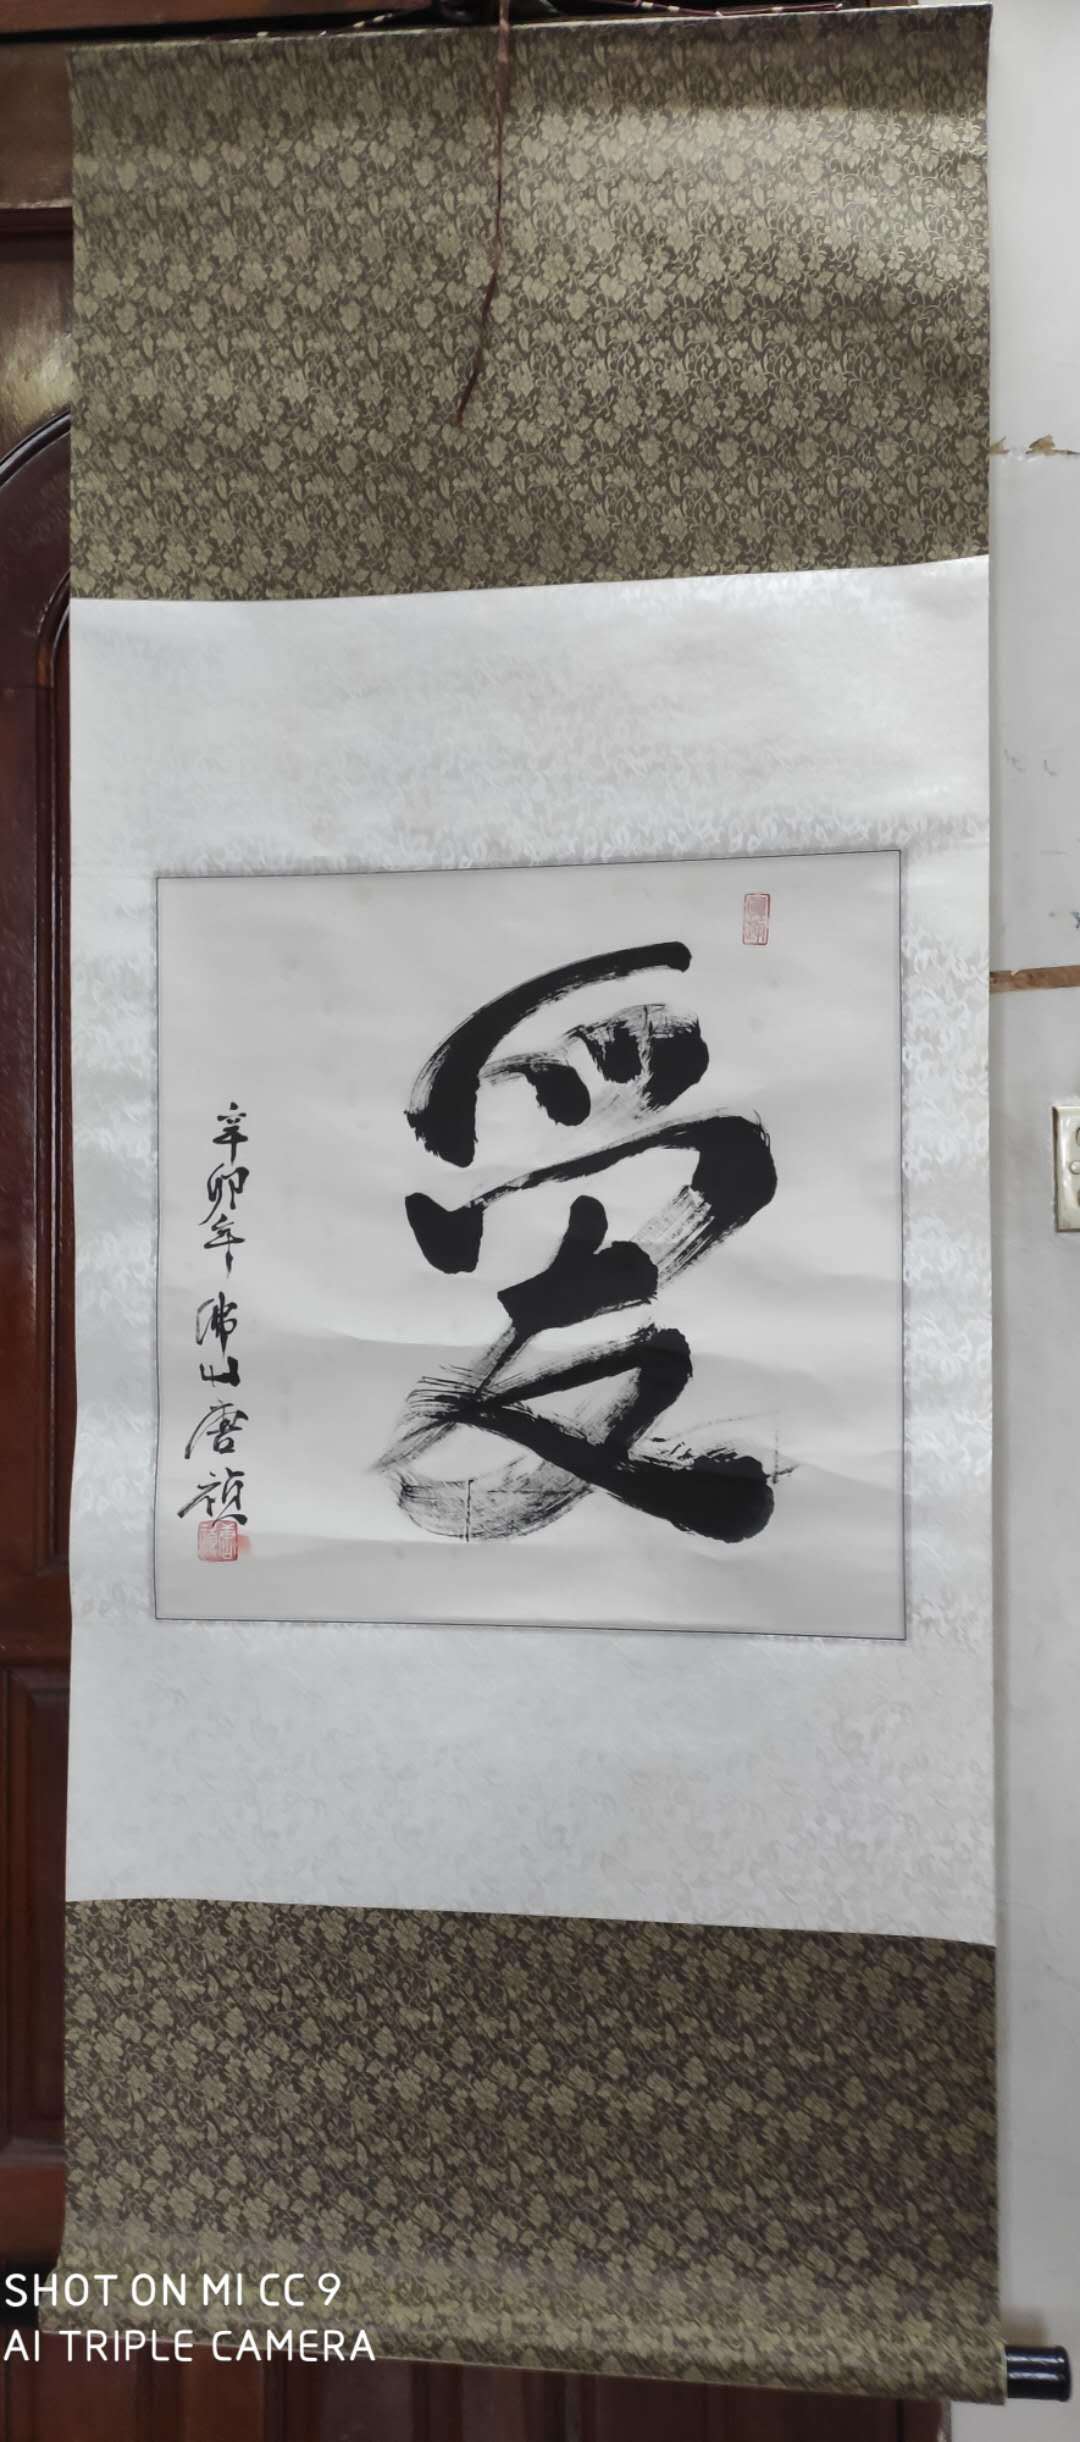 爱
辛卯年 佛山 唐祯
SHOT ON MI CC 9
AI TRIPLE CAMERA